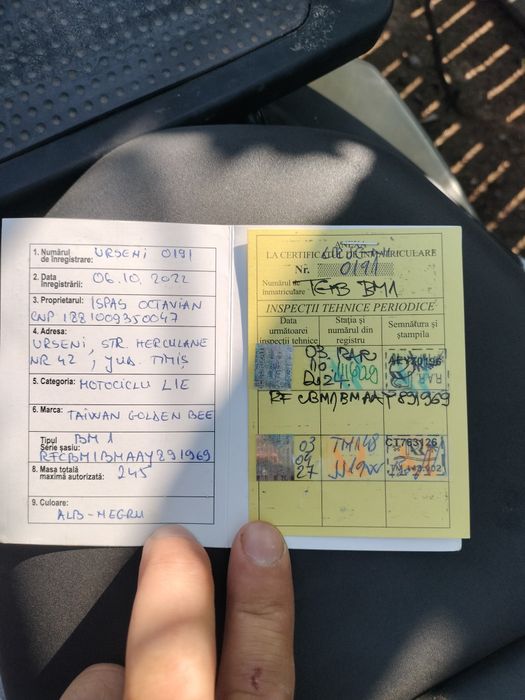 1. Numărul
de înregistrare: URSENI 0191
2. Data
înregistrării: 06.10.2022
3. Proprietarul: ISPAS OCTAVIAN
CNP 1881009350047
4. Adresa:
URSENI, STR. HERCULANE
NR 42, JUD. TIMIȘ
5. Categoria: MOTOCICLU L1E
6. Marca: TAIWAN GOLDEN BEE
Tipul BM1
Serie șasiu: RFCBM1BMAAY891969
8. Masa totală
maximă autorizată: 245
9. Culoare:
ALB-NEGRU
ANEXA
LA CERTIFICATUL DE ÎNMATRICULARE
Nr. 0191
Numărul de
înmatriculare TGB BM1
INSPECȚII TEHNICE PERIODICE
Data
următoarei
inspecții tehnice
Stația și
numărul din
registru
Semnătura și
ștampila
03 RAR
10
2024
RAR
RFCBM1BMAAY891969
03 TM148 CT763126
09
27